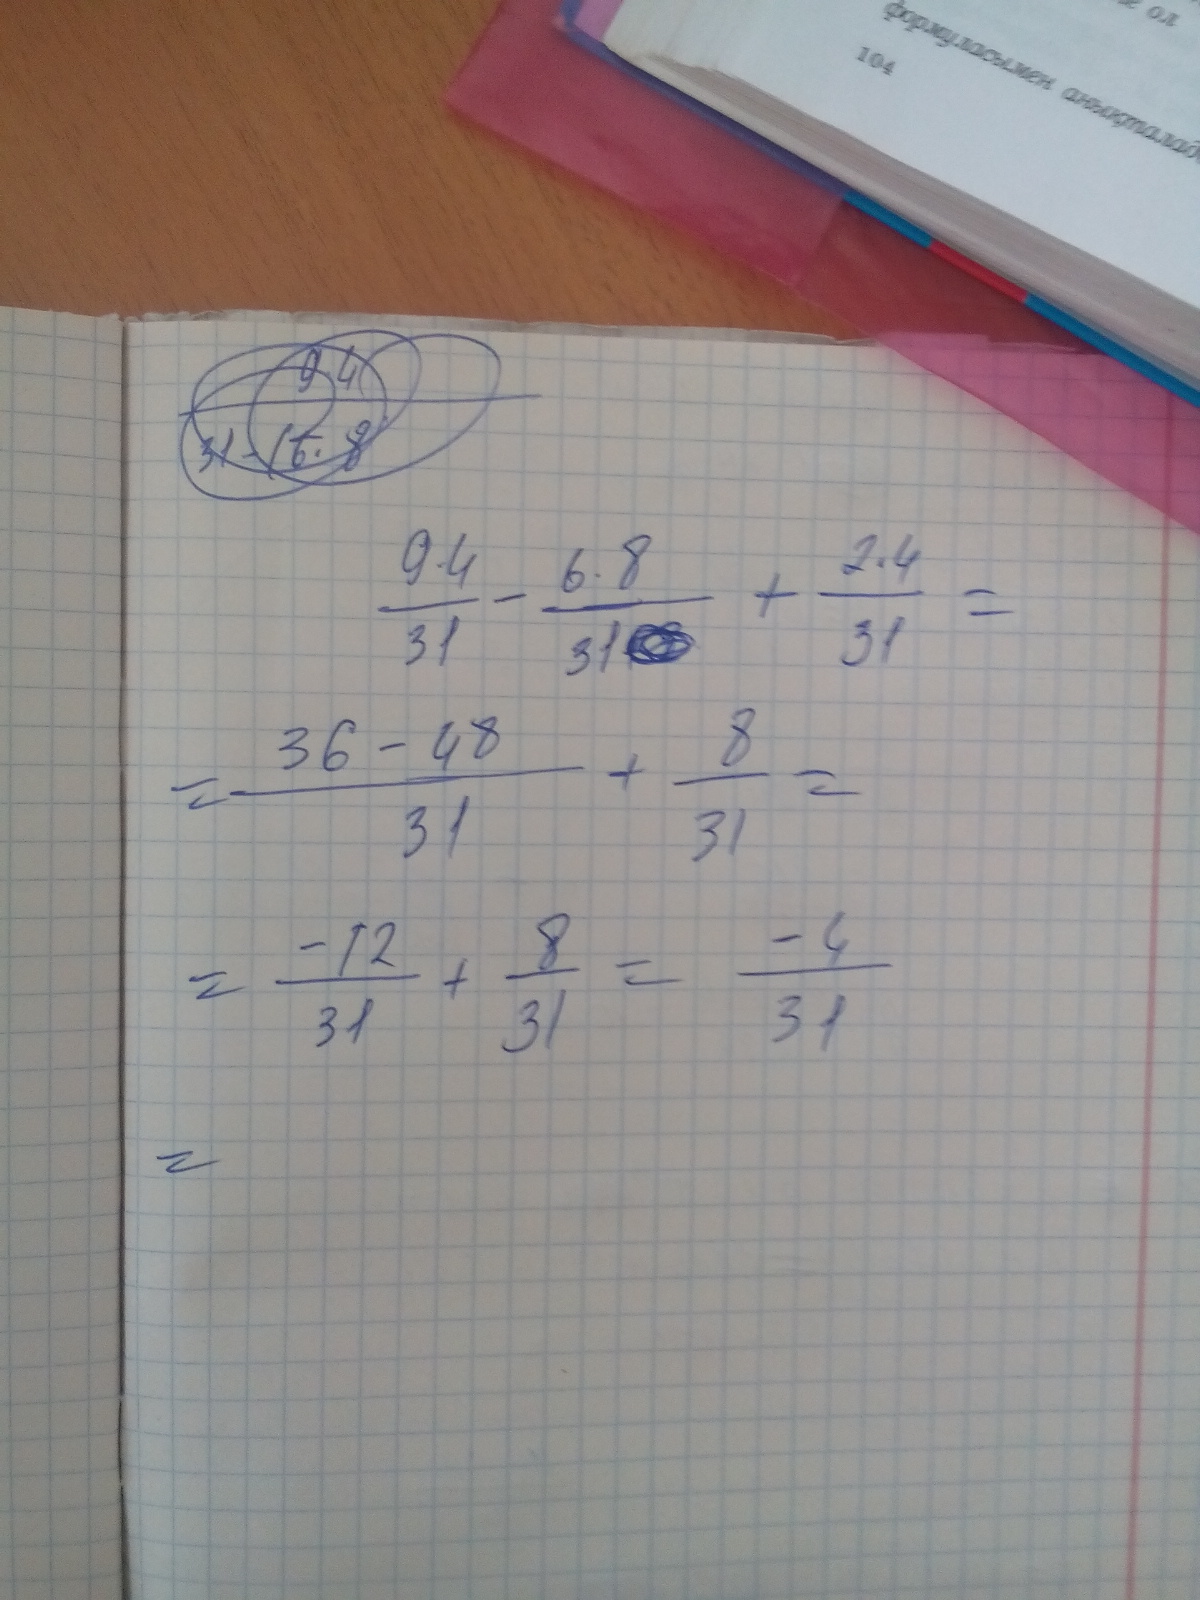 ол
формуласымен анықталады
104
9·4
31-16·8
9·4/31 - 6·8/31 + 2·4/31 =
= 36-48/31 + 8/31 =
= -12/31 + 8/31 = -4/31
=